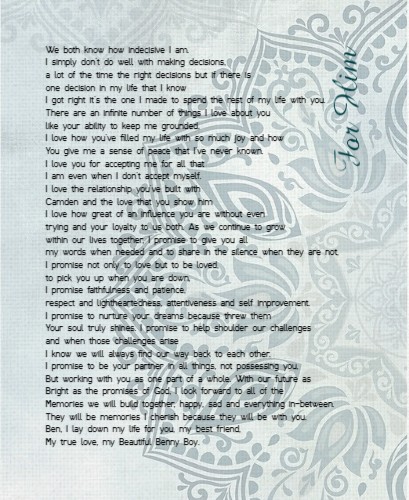 For Him
We both know how indecisive I am.
I simply don't do well with making decisions,
a lot of the time the right decisions but if there is
one decision in my life that I know
I got right it's the one I made to spend the rest of my life with you.
There are an infinite number of things I love about you
like your ability to keep me grounded,
I love how you've filled my life with so much joy and how
You give me a sense of peace that I've never known.
I love you for accepting me for all that
I am even when I don't accept myself.
I love the relationship you've built with
Camden and the love that you show him
I love how great of an influence you are without even
trying and your loyalty to us both. As we continue to grow
within our lives together, I promise to give you all
my words when needed and to share in the silence when they are not,
I promise not only to love but to be loved,
to pick you up when you are down,
I promise faithfulness and patience,
respect and lightheartedness, attentiveness and self improvement.
I promise to nurture your dreams because threw them
Your soul truly shines. I promise to help shoulder our challenges
and when those challenges arise
I know we will always find our way back to each other.
I promise to be your partner in all things, not possessing you.
But working with you as one part of a whole. With our future as
Bright as the promises of God, I look forward to all of the
Memories we will build together, happy, sad and everything in-between.
They will be memories I cherish because they will be with you.
Ben, I lay down my life for you, my best friend,
My true love, my Beautiful, Benny Boy.